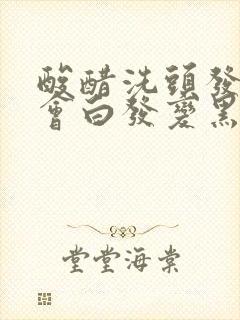 酸醋洗頭發
會白發變黑
堂堂海棠